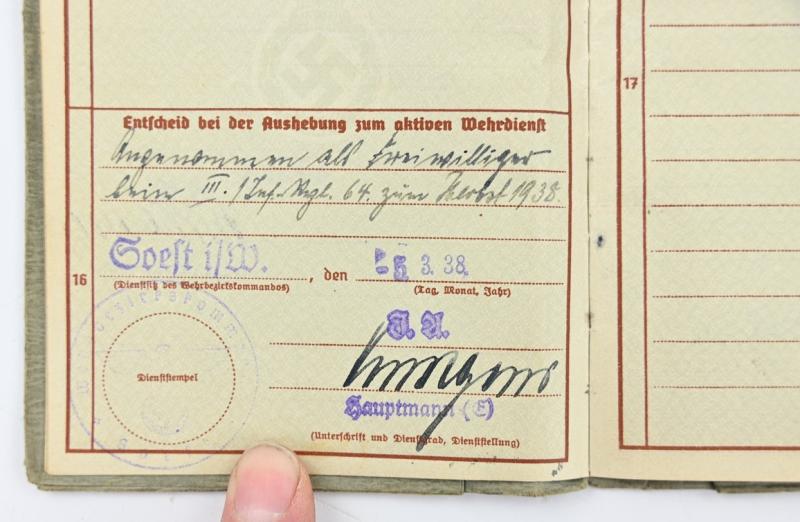 Entscheid bei der Aushebung zum aktiven Wehrdienst
Angenommen als Freiwilliger
beim III./Inf.-Rgt. 64. zum Herbst 1938.
16
Soest i/W. , den 5. 3. 38.
(Dienstsitz des Wehrbezirkskommandos) (Tag, Monat, Jahr)
I. A.
Dienststempel
Hauptmann (E)
(Unterschrift und Dienstgrad, Dienststellung)
17